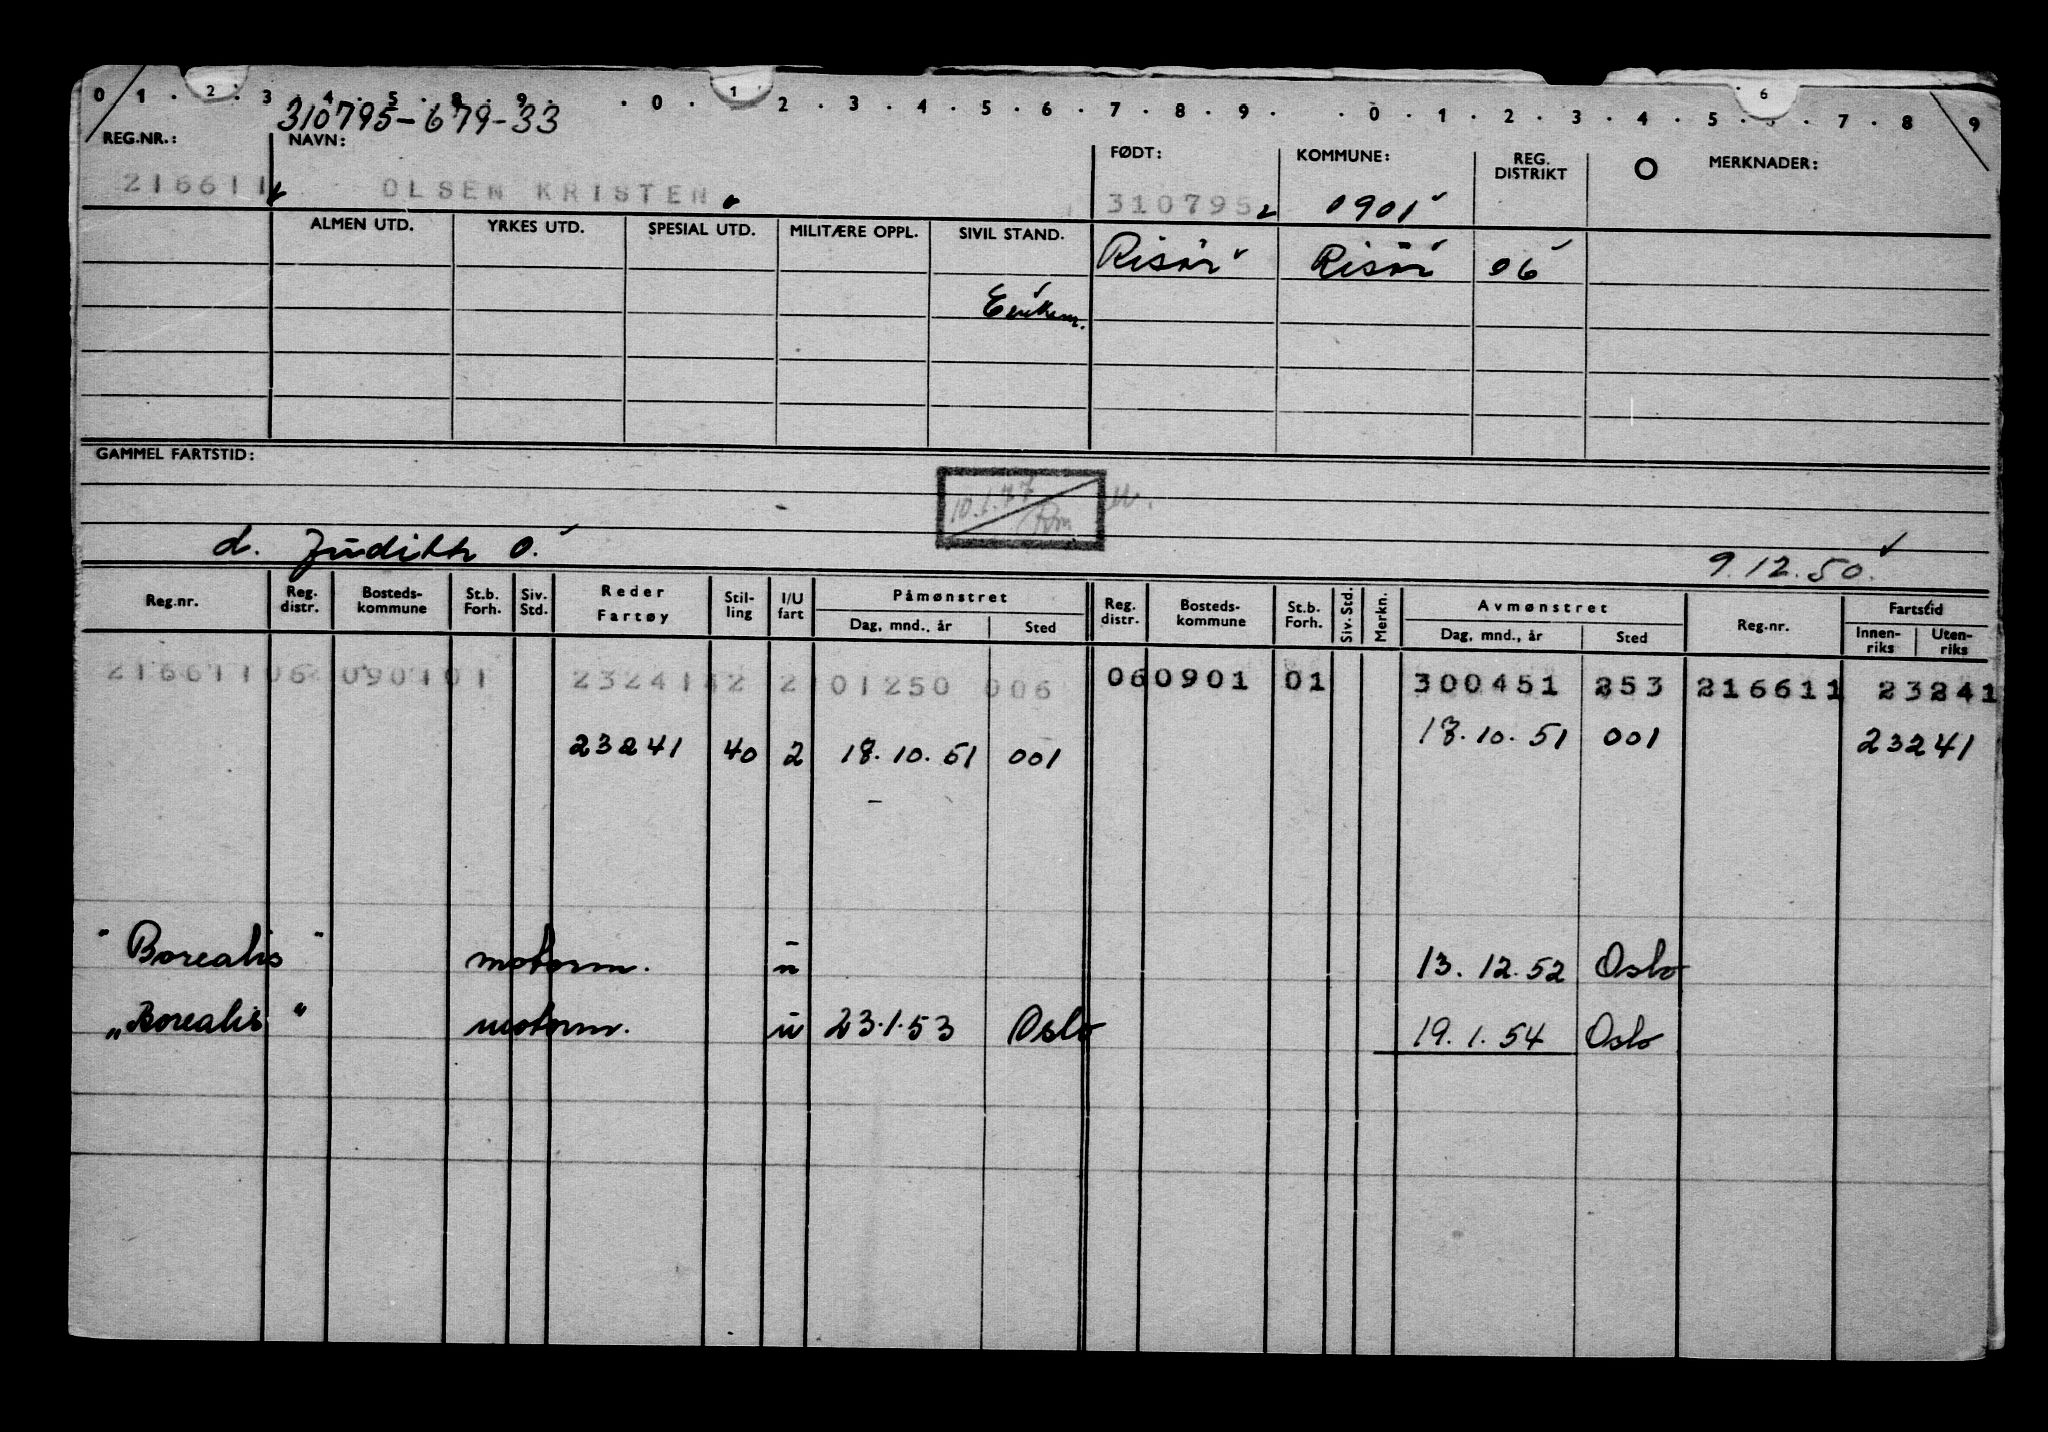 0 1 . 2 . 3 . 4 . 5 . 8 . 9 . . 0 . 1 . 2 . 3 . 4 . 5 . 6 . 7 . 8 . 9 . . 0 . 1 . 2 . 3 . 4 . 5 . 6 . 7 . 8 9
310795-679-33
REG.NR.: NAVN: FØDT: KOMMUNE: REG. DISTRIKT O MERKNADER:
216611 OLSEN KRISTEN 310795 0901
ALMEN UTD. YRKES UTD. SPESIAL UTD. MILITÆRE OPPL. SIVIL STAND. Risör Risör 06
Enkem.
GAMMEL FARTSTID:
10.1.77
d. Judith O. 9.12.50.
Reg.nr. Reg. distr. Bosteds-kommune St.b. Forh. Siv. Std. Reder Fartøy Stil-ling I/U fart Påmønstret Reg. distr. Bosteds-kommune St.b. Forh. Siv. Std. Merkn. Avmønstret Reg.nr. Fartstid
Dag, mnd., år Sted Dag, mnd., år Sted Innen-riks Uten-riks
216611 06 0901 01 23241 42 2 01250 006 060901 01 300451 253 216611 23241
23241 40 2 18.10.51 001 18.10.51 001 23241
"Borealis" motorm. u 13.12.52 Oslo
"Borealis" motorm. u 23.1.53 Oslo 19.1.54 Oslo